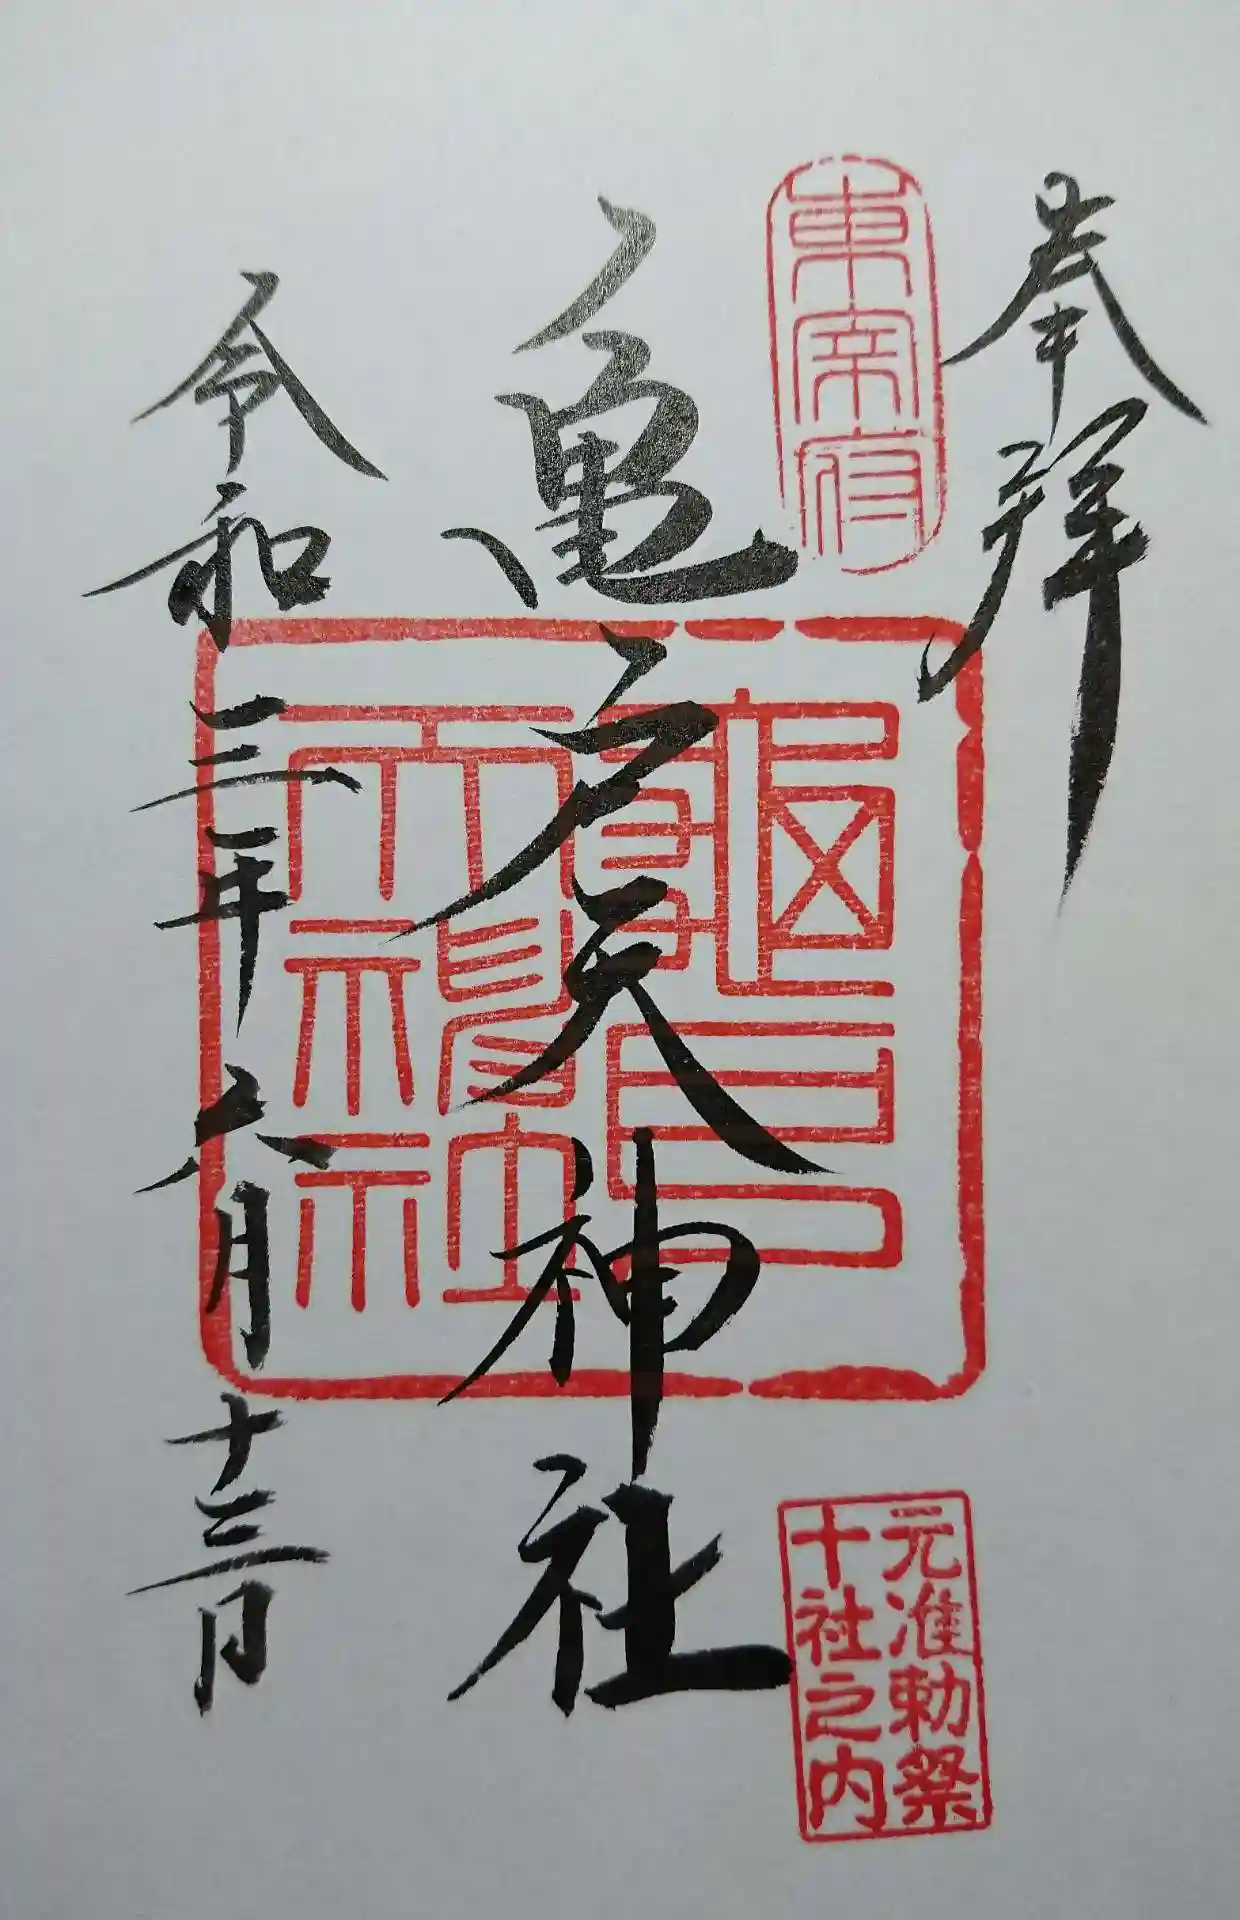 奉拝
東宰府
元准勅祭
十社之内
亀戸天神社
龜戸
天神社
令和三年六月十三日